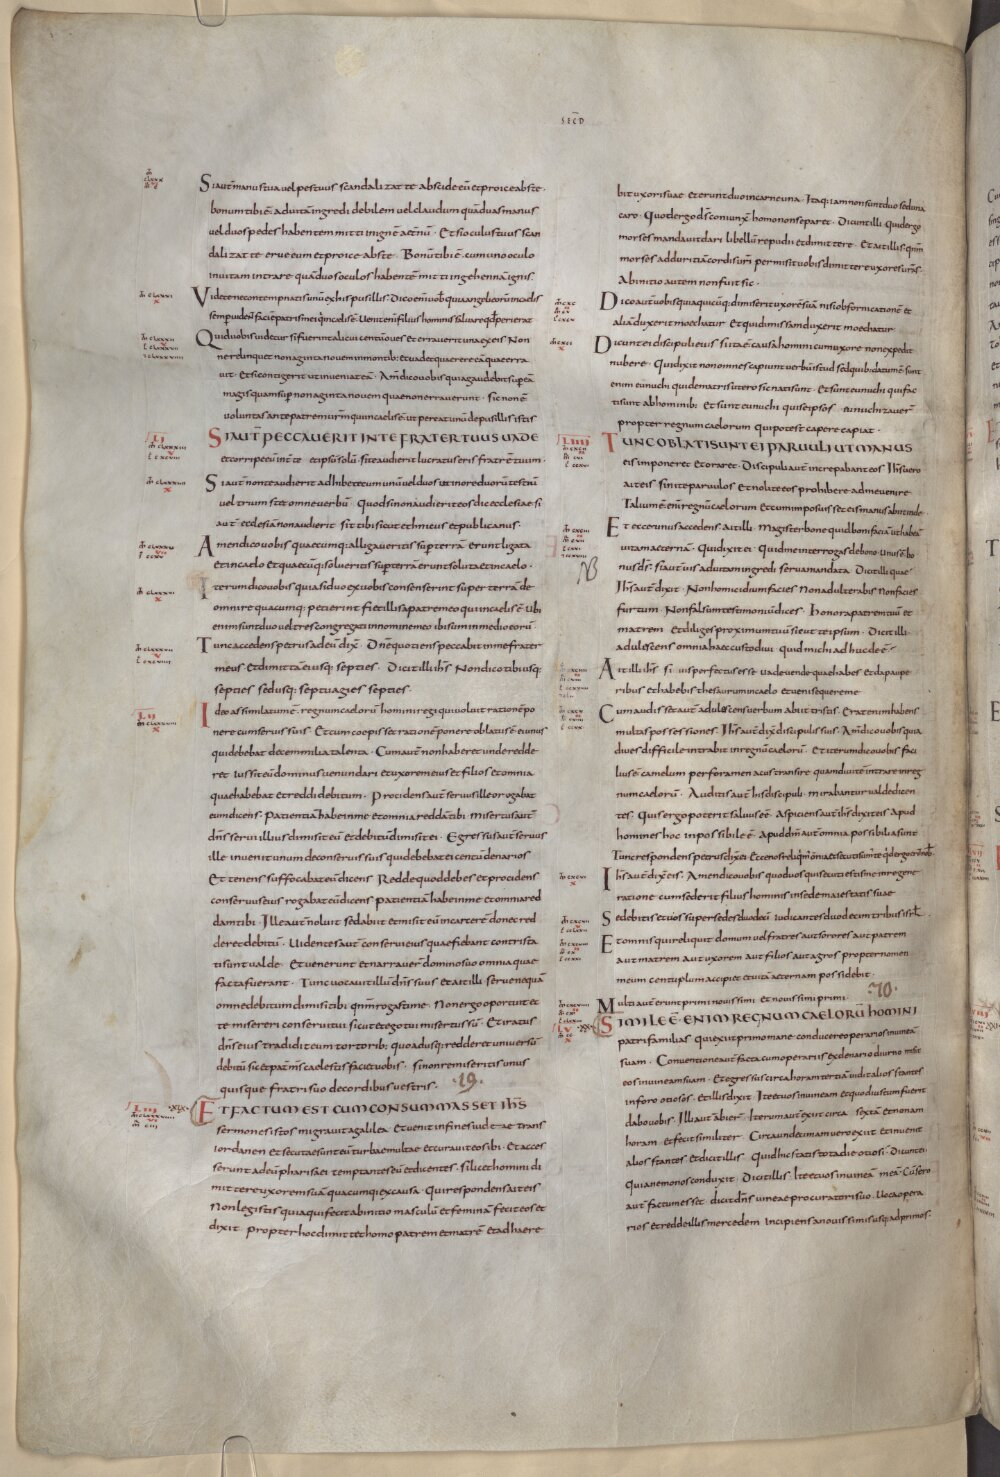 SECD
Siaut̄ manus tua vel pes tuus scandalizat te abscide eū et proice abs te ·
bonum tibi ē ad uitā ingredi debilem vel claudum quā duas manus
vel duos pedes habentem mitti in ignē aet̄nū · Et si oculus tuus scan
dalizat te erue eum et proice abs te · Bonū tibi ē cum uno oculo
in uitam intrare quā duos oculos habentē mitti in gehennā ignis
Videte ne contempnatis unū ex his pusillis · Dico eni uob̄ quia angeli eorū in caelis
semp̄ uident faciē patris mei qi in caelis ē · Uenit eni filius hominis saluare qd̄ perierat
Quid uobis uidetur si fuerint alicui centū oues et errauerit una ex eis · Non
ne relinquet nonaginta nouem in montib: et uadet quaerere eā quae erra
uit · Et si contigerit ut inueniat eā · Am̄ dico uobis quia gaudebit sup̄ eā
magis quam sup̄ nonaginta nouem quae non errauerunt · sic non ē
voluntas ante patrem ur̄m qui in caelis ē ut pereat unū de pusillis istis
LI
SI AUT̄ PECCAUERIT IN TE FRATER TUUS UADE
et corripe eū int̄ te et ipsū solū · si te audierit lucratus eris fratrē tuum ·
Si aut̄ non te audierit adhibe tecum unū vel duos ut in ore duorū testiū
vel trium stet omne uerbū · Quod si non audierit eos dic ecclesiae · si
aut̄ ecclesiā non audierit sit tibi sicut ethnicus et publicanus ·
Amen dico uobis quaecumq: alligaueritis sup̄ terrā erunt ligata
et in caelo et quaecūq: solueritis sup̄ terrā erunt soluta et in caelo ·
Iterum dico uobis quia si duo ex uobis consenserint super terrā de
omni re quacumq: petierint fiet illis a patre meo qui in caelis ē · Ubi
enim sunt duo vel tres congregati in nomine meo ibi sum in medio eorū
Tunc accedens petrus ad eū dix̄ · Dn̄e quotiens peccabit in me frater
meus et dimittā ei usq: septies · Dicit illi ih̄s Non dico tibi usq:
septies sed usq: septuagies septies ·
LII
Ideo assimilatum ē regnum caelorū homini regi qui uoluit rationē po
nere cum seruis suis · Et cum coepisset rationē ponere oblatus ē ei unus
qui debebat decem milia talenta · Cum aut̄ non haberet unde redde
ret iussit eū dominus uenundari et uxorem eius et filios et omnia
quae habebat et reddi debitum · Procidens aut̄ seruus ille rogabat
eum dicens · Patientiā habe in me et omnia reddā tibi · Misertus aut̄
dn̄s serui illius dimisit eū et debitū dimisit ei · Egressus aut̄ seruus
ille inuenit unum de conseruis suis qui debebat ei centū denarios
Et tenens suffocabat eū dicens Redde quod debes et procidens
conseruus eius rogabat eū dicens patientiā habe in me et omnia red
dam tibi · Ille aut̄ noluit sed abiit et misit eū in carcerē donec red
deret debitū · Uidentes aut̄ conserui eius quae fiebant contrista
ti sunt ualde · Et uenerunt et narrauer̄ domino suo omnia quae
facta fuerant · Tunc uocauit illū dn̄s suus et ait illi serue nequā
omne debitum dimisi tibi qnm rogasti me · Non ergo oportuit et
te misereri conserui tui sicut et ego tui misertus sū · Et iratus
dn̄s eius tradidit eum tortorib: quoadusq: redderet uniuersū
debitū sic et pat̄ m̄s caelestis faciet uobis · si non remiseritis unus
quisque fratri suo de cordibus uestris · ·19·
LIII ·XIX·
ET FACTUM EST CUM CONSUMMASSET IH̄S
sermones istos migrauit a galilea · Et uenit in fines iudeae trans
iordanen et secutae sunt eū turbae multae et curauit eos ibi · Et acces
serunt ad eū pharisaei temptantes eū et dicentes · si licet homini di
mittere uxorem suā quacumq: ex causa · Qui respondens ait eis
Non legistis quia qui fecit ab initio masculū et feminā fecit eos et
dixit propter hoc dimittet homo patrem et matrē et adhaere
bit uxori suae et erunt duo in carne una · Itaq: iam non sunt duo sed una
caro · Quod ergo ds̄ coniunx̄ homo non separet · Dicunt illi Quid ergo
morses mandauit dari libellū repudii et dimittere · Et ait illis qnm
morses ad duritiā cordis ur̄i permisit uobis dimittere uxores ur̄as ·
Ab initio autem non fuit sic ·
Dico aut̄ uobis quia quicūq: dimiserit uxorē suā nisi ob fornicationē et
aliā duxerit moechatur et qui dimissam duxerit moechatur
Dicunt ei discipuli eius si ita ē causa homini cum uxore non expedit
nubere · Qui dixit non omnes capiunt uerbū istud sed quib: datum ē · sunt
enim eunuchi qui de matris utero sic nati sunt · Et sunt eunuchi qui fac
ti sunt ab hominib: et sunt eunuchi qui se ipsos eunuchizauer̄
propter regnum caelorum qui potest capere capiat ·
LIIII
TUNC OBLATI SUNT EI PARUULI UT MANUS
eis imponeret et oraret · Discipuli aut̄ increpabant eos Ih̄s uero
ait eis sinite paruulos et nolite eos prohibere ad me uenire
Talium ē eni regnū caelorum et cum imposuisset eis manus abiit inde
Et ecce unus accedens ait illi Magister bone quid boni faciā ut habeā
uitam aeternā · Qui dixit ei · Quid me interrogas de bono · Unus ē bo
nus ds̄ · si aut̄ uis ad uitam ingredi serua mandata Dicit illi quae
NB
Ih̄s aut̄ dixit · Non homicidium facies Non adulterabis Non facies
furtum · Non falsum testimoniū dices · honora patrem tuū et
matrem et diliges proximum tuū sicut te ipsum · Dicit illi
adulescens omnia haec custodiui quid michi adhuc de ē
Ait illi ih̄s si uis perfectus esse uade uende quae habes et da paupe
ribus et habebis thesaurum in caelo et ueni sequere me
Cum audisset aut̄ adulescens uerbum abiit tristis · Erat enim habens
multas possessiones · Ih̄s aut̄ dix̄ discipulis suis · Am̄ dico uobis quia
diues difficile intrabit in regnū caelorū · Et iterum dico uobis faci
lius ē camelum per foramen acus transire quam diuitē intrare in reg
num caelorū · Auditis aut̄ his discipuli mirabantur ualde dicen
tes · Quis ergo poterit saluus ēē · Aspiciens aut̄ ih̄s dixit eis Apud
homines hoc inpossibile ē apud dm̄ aut̄ omnia possibilia sunt
Tunc respondens petrus dix̄ ei Ecce nos reliqim̄ omia et secuti sum̄ te qd̄ ergo erit nob̄
Ih̄s aut̄ dix̄ eis · Amen dico uobis quod uos qui secuti estis me in regene
ratione cum sederit filius hominis in sede maiestatis suae
Sedebitis et uos super sedes duodecī iudicantes duodecim tribus isrl̄ ·
Et omnis qui reliquit domum vel fratres aut sorores aut patrem
aut matrem aut uxorem aut filios aut agros propter nomen
meum centuplum accipiet et uitā aeternam possidebit ·
Multi aut̄ erunt primi nouissimi et nouissimi primi · ·20·
LV ·XX·
SIMILE Ē ENIM REGNUM CAELORŪ HOMINI
patri familias qui exiit primo mane conducere operarios in uineā
suam · Conuentione aut̄ facta cum operariis ex denario diurno misit
eos in uineam suam · Et egressus circa horam tertiā uidit alios stantes
in foro otiosos · Et illis dixit · Ite et uos in uineam et quod iustum fuerit
dabo uobis · Illi aut̄ abier̄ · Iterum aut̄ exiit circa sextā et nonam
horam et fecit similiter · Circa undecimam uero exiit et inuenit
alios stantes et dicit illis Quid hic statis tota die otiosi · Dicunt ei
quia nemo nos conduxit · Dicit illis Ite et uos in uineā meā · Cū sero
aut̄ factum esset dicit dn̄s uineae procuratori suo · Uoca opera
rios et redde illis mercedem incipiens a nouissimis usq: ad primos ·